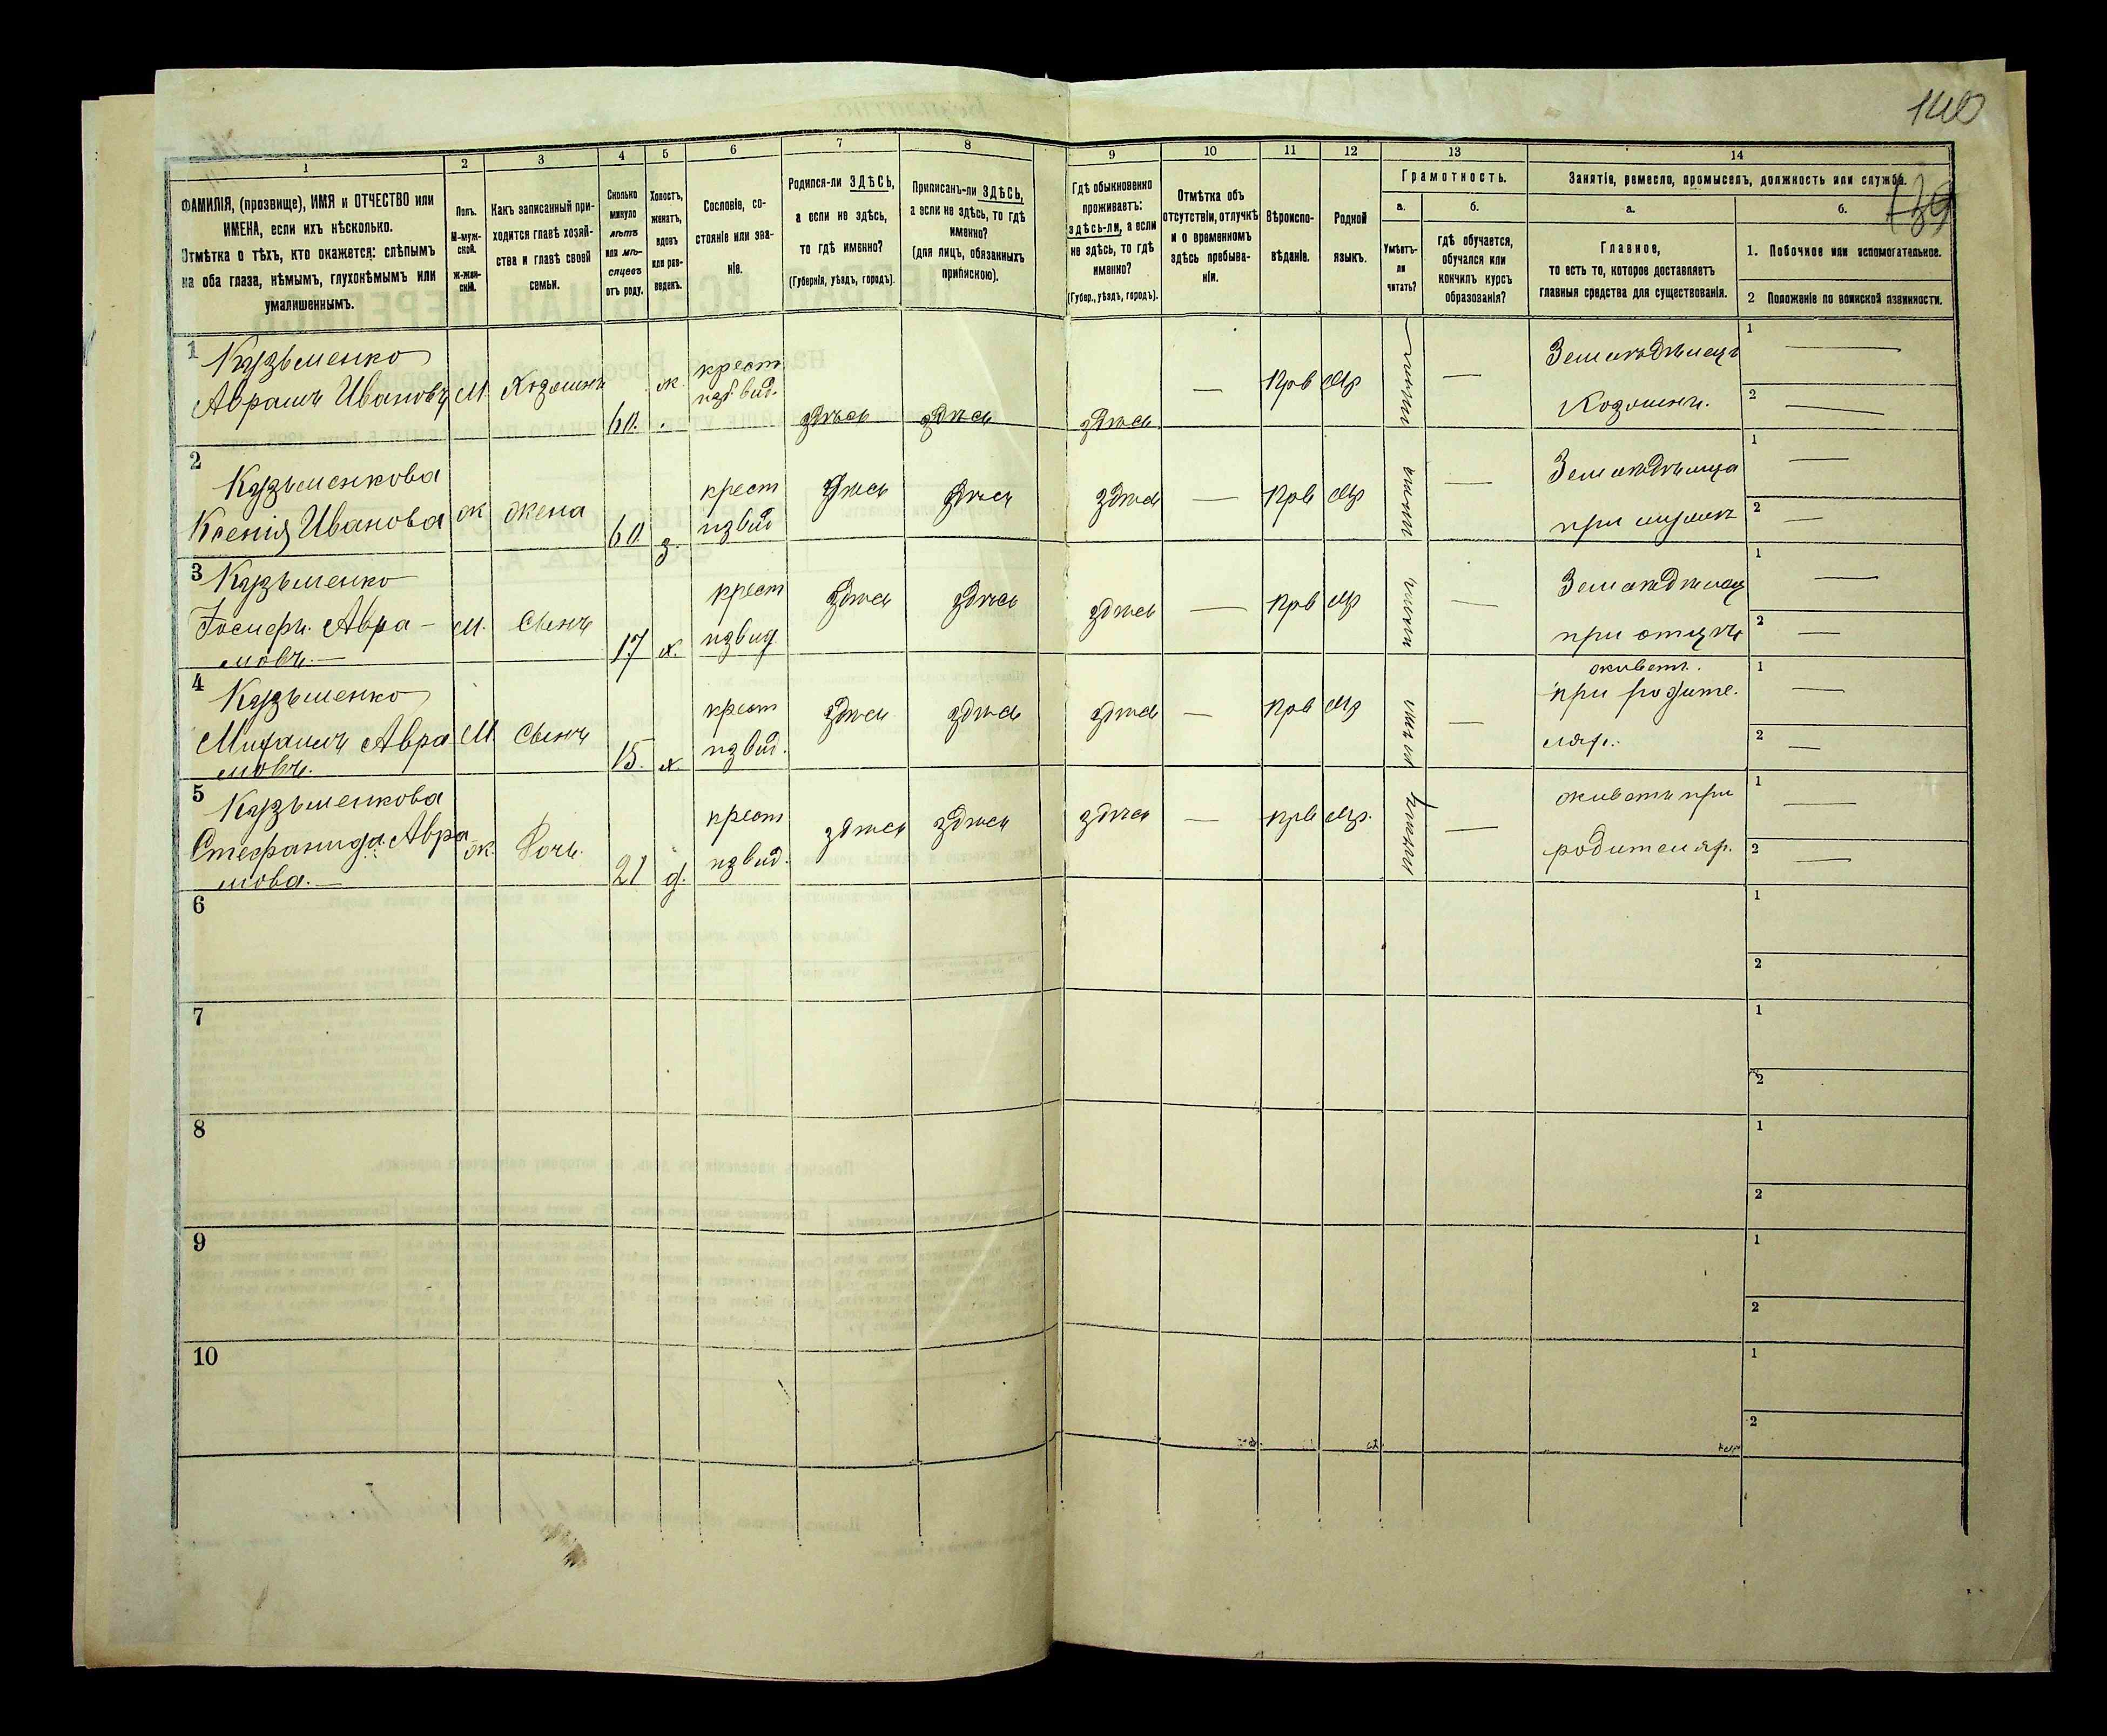 140
139
1
2
3
4
5
6
7
8
9
10
11
12
13
14
ФАМИЛІЯ, (прозвище), ИМЯ и ОТЧЕСТВО или
ИМЕНА, если ихъ нѣсколько.
Отмѣтка о тѣхъ, кто окажется: слѣпымъ
на оба глаза, нѣмымъ, глухонѣмымъ или
умалишеннымъ.
Полъ.
М-муж-
ской.
Ж-жен-
скій.
Какъ записанный при-
ходится главѣ хозяй-
ства и главѣ своей
семьи.
Сколько
минуло
лѣтъ
или мѣ-
сяцевъ
отъ роду.
Холостъ,
женатъ,
вдовъ
или раз-
веденъ.
Сословіе, со-
стояніе или зва-
ніе.
Родился-ли ЗДѢСЬ,
а если не здѣсь,
то гдѣ именно?
(Губернія, уѣздъ, городъ).
Приписанъ-ли ЗДѢСЬ,
а если не здѣсь, то гдѣ
именно?
(для лицъ, обязанныхъ
припискою).
Гдѣ обыкновенно
проживаетъ:
здѣсь-ли, а если
не здѣсь, то гдѣ
именно?
(Губер., уѣздъ, городъ).
Отмѣтка объ
отсутствіи, отлучкѣ
и о временномъ
здѣсь пребыва-
ніи.
Вѣроиспо-
вѣданіе.
Родной
языкъ.
Грамотность.
а.
Умѣетъ-
ли
читать?
б.
гдѣ обучается,
обучался или
кончилъ курсъ
образованія?
Занятіе, ремесло, промыселъ, должность или служба.
а.
Главное,
то есть то, которое доставляетъ
главныя средства для существованія.
б.
1. Побочное или вспомогательное.
2 Положеніе по воинской повинности.
1 Кузьменко
Аврамъ Ивановъ М Хозяинъ 60. ж. крест
изъ влад. здѣсь здѣсь здѣсь — Прв Мр — Земледѣлецъ
Хозяинъ.
1 —
2 —
2 Кузьменкова
Ксенія Иванова ж жена 60 з. крест
из влад здѣсь здѣсь здѣсь — Прв Мр — Земледѣлица
при мужѣ
1 —
2 —
3 Кузьменко
Іосифъ Авра-
мовъ.— М. Сынъ 17 х. крест
из влад здѣсь здѣсь здѣсь — Прв Мр — Земледѣлец
при отцѣ
1 —
2 —
4 Кузьменко
Михаилъ Авра
мовъ. М Сынъ 15. х. крест
из влад. здѣсь здѣсь здѣсь — Прв Мр — живетъ
при родите.
ляхъ.
1 —
2 —
5 Кузьменкова
Стефанида Авра
мова.— ж. Дочь. 21 д. крест
из влад. здѣсь здѣсь здѣсь — прв Мр. — живетъ при
родителях.
1 —
2 —
6
1
2
7
1
2
8
1
2
9
1
2
10
1
2